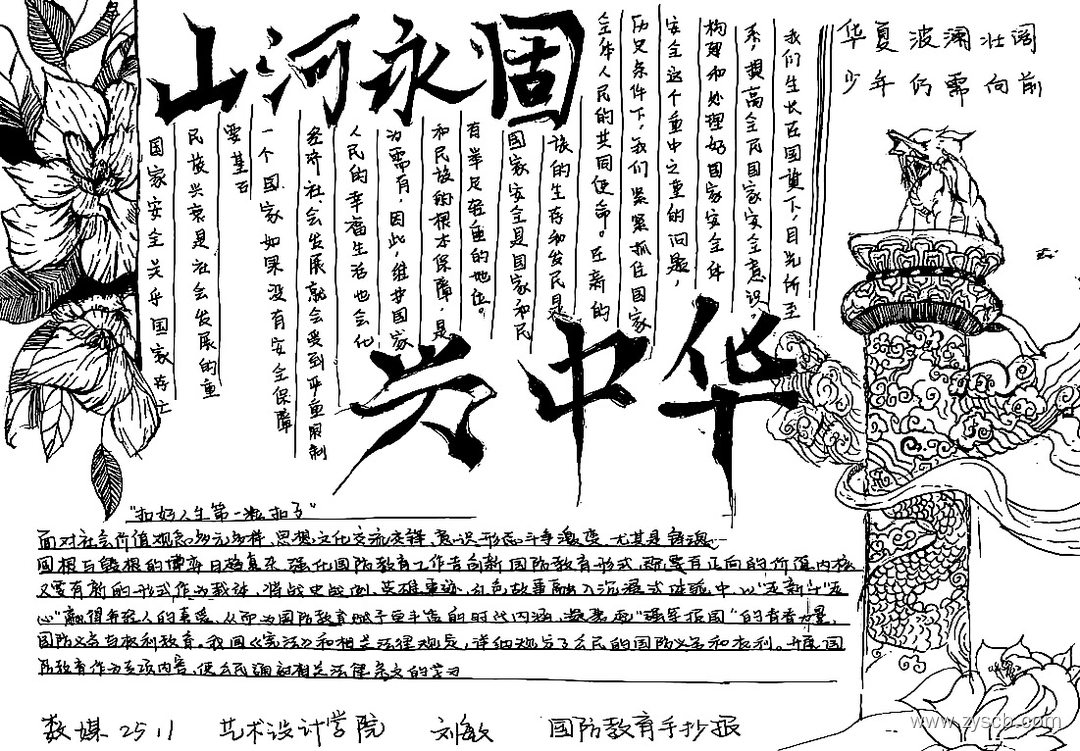 山河永固
兴中华
华夏波澜壮阔
少年仍需向前
我们生长在国旗下，目光所至
系，提高全民国家安全意识。
构建和处理好国家安全体
安全这个重中之重的问题，
历史条件下，我们紧紧抓住国家
全体人民的共同使命。在新的
族的生存和发民是
国家安全是国家和民
有举足轻重的地位。
和民族的根本保障，是
为需有，因此，维护国家
人民的幸福生活也会化
经济社会发展就会受到严重限制
一个国家如果没有安全保障
要基石
民族兴衰是社会发展的重
国家安全关乎国家
"扣好人生第一粒扣子"
面对社会价值观念多元多样、思想文化交流交锋、意识形态斗争激变，尤其是
国根与毁根的博弈日趋复杂，强化国防教育工作走向新国防教育形式，既要有正向的价值内核
又要有新的形式作为载体，将战史战例、英雄事迹、红色故事融入沉浸式体验中，以
心"赢得年轻人的喜爱，从而为国防教育赋予更丰富的时代内涵，凝聚起"强军报国"的青春力量，
国防义务与权利教育。我国《宪法》和相关法律规定，详细规定了公民的国防义务和权利。开展国
防教育作为专项内容，使公民调动相关法律条文的学习
数媒2511 艺术设计学院 刘敏 国防教育手抄报
www.zyscb.com